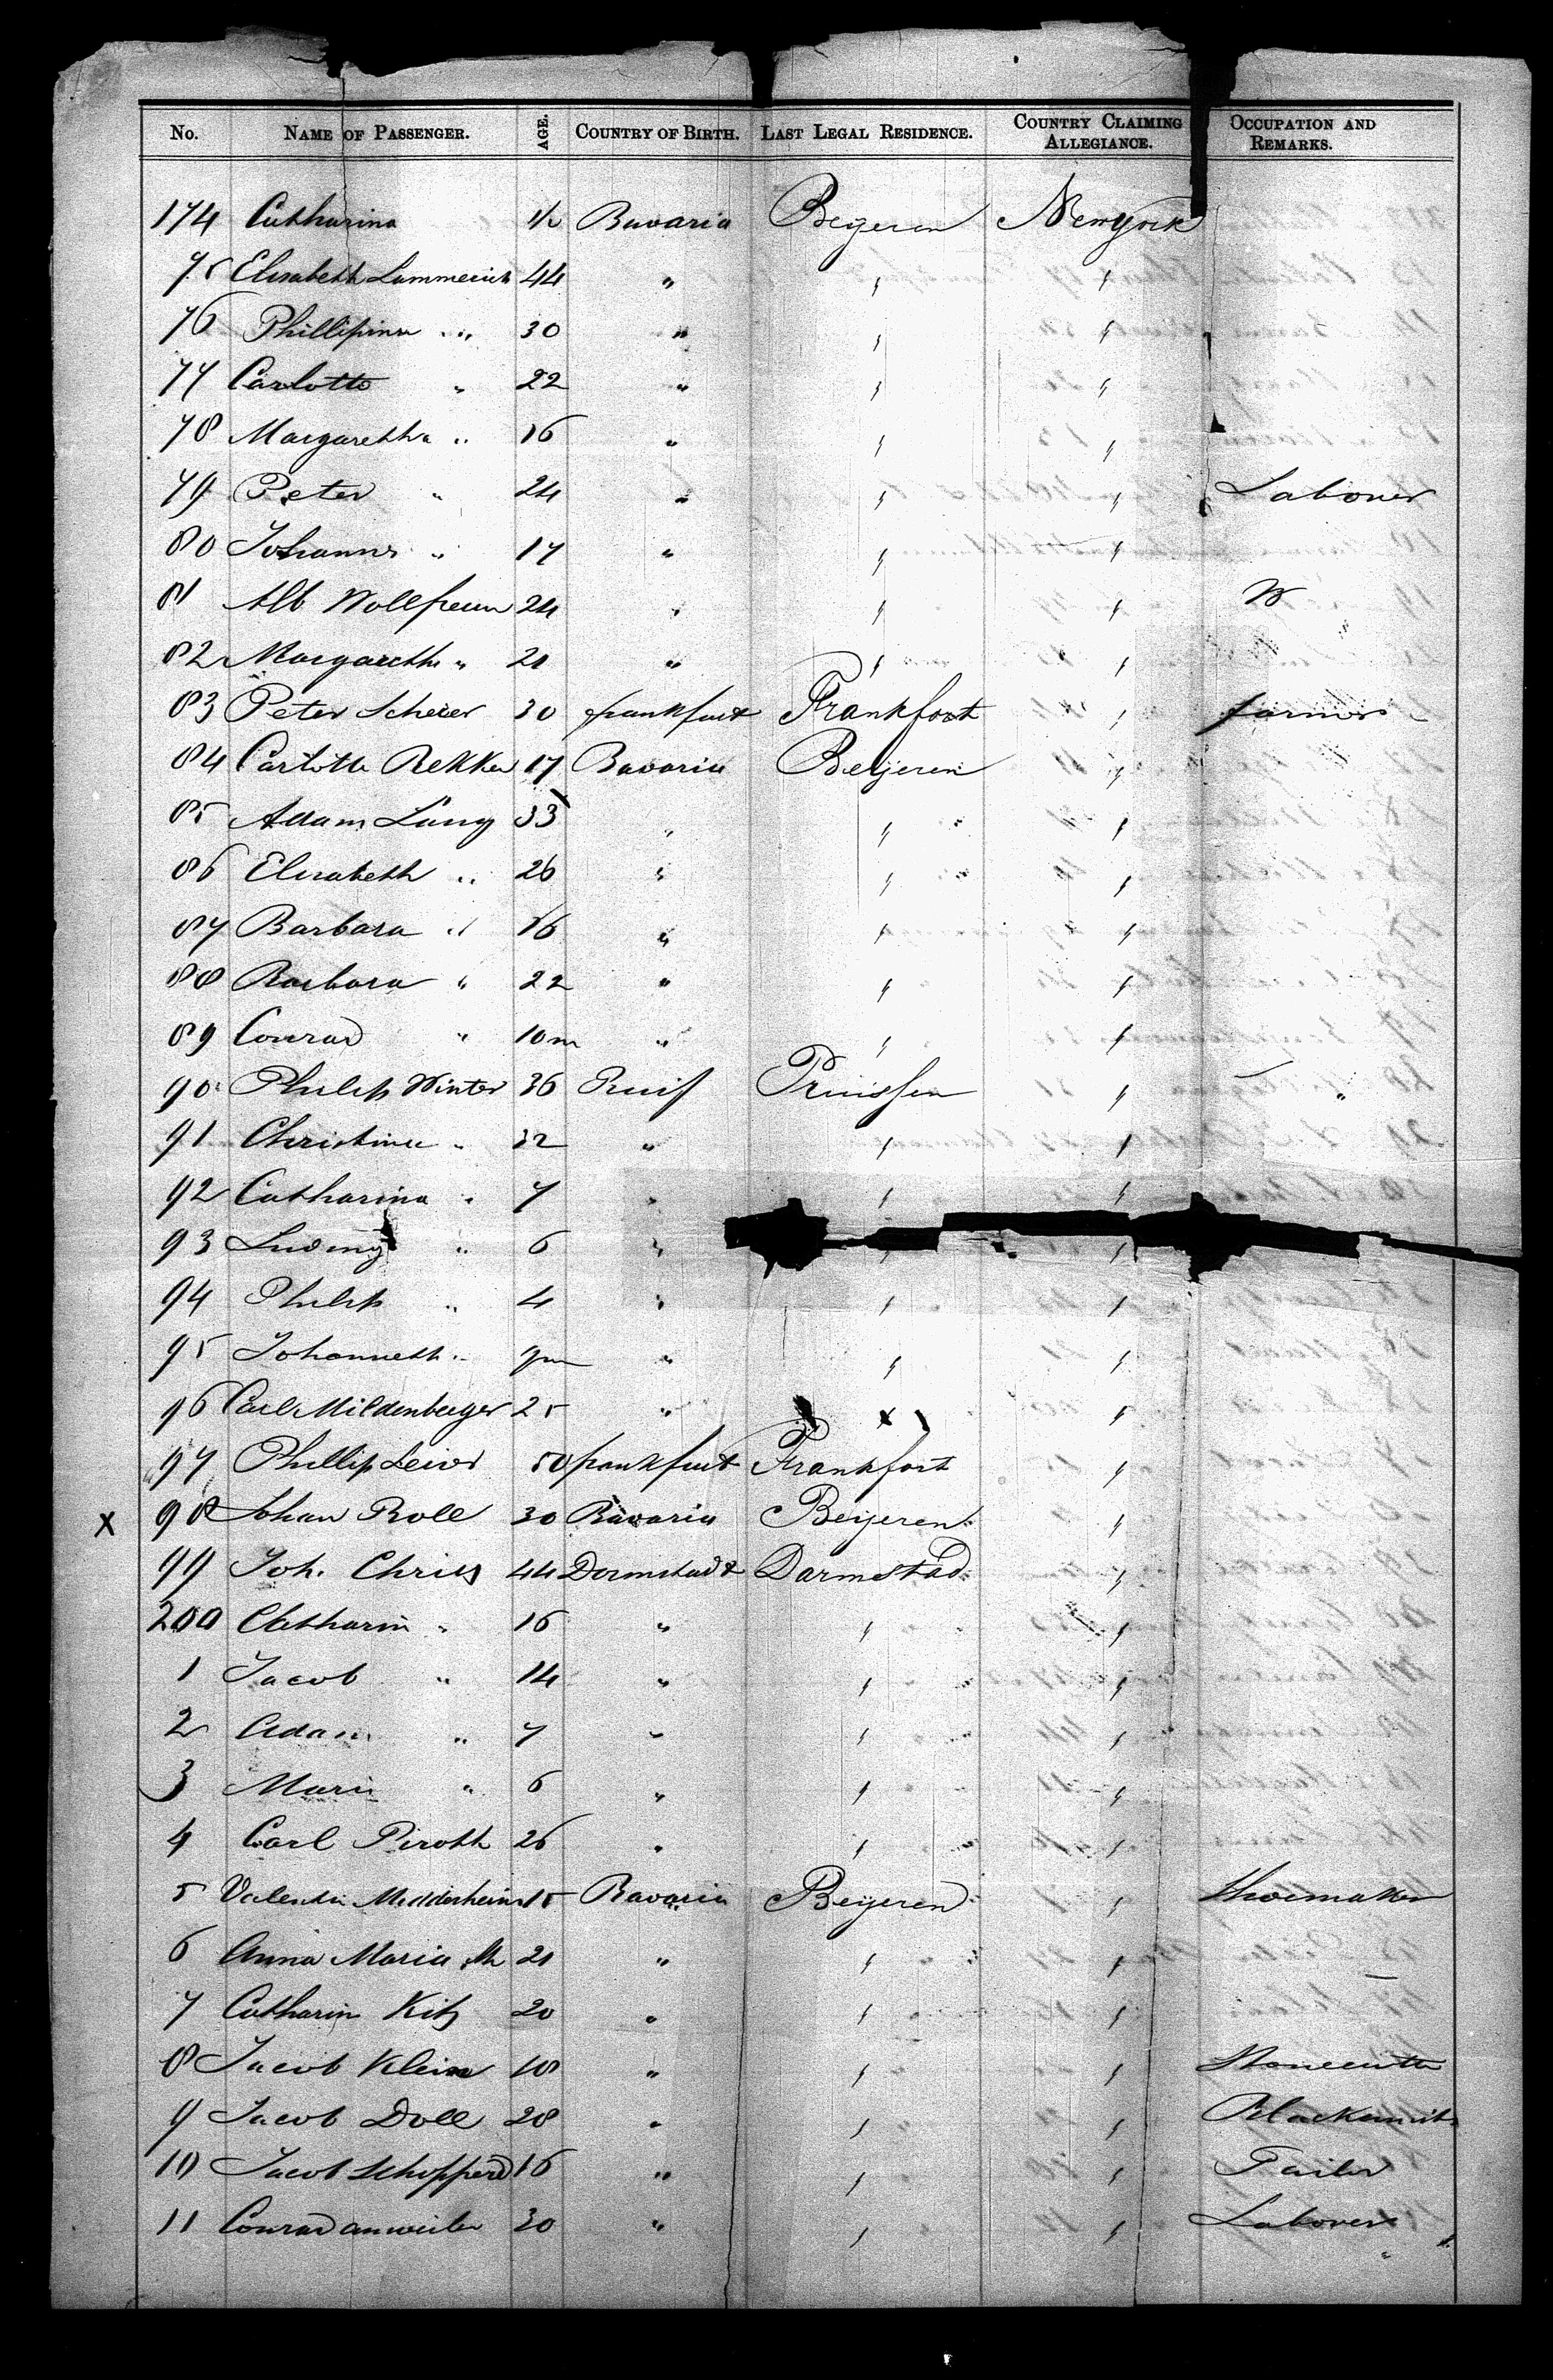 No. NAME OF PASSENGER. AGE. COUNTRY OF BIRTH. LAST LEGAL RESIDENCE. COUNTRY CLAIMING ALLEGIANCE. OCCUPATION AND REMARKS.
174 Catharina 1/2 Bavaria Beyeren New York
75 Elisabeth Lammerich 44 " " "
76 Phillipina " 30 " " "
77 Carlotta " 22 " " "
78 Margaretha " 16 " " "
79 Peter " 24 " " " Laborer
80 Johannes " 17 " " "
81 Alb 24 " " "
82 Margaretha " 21 " " "
83 Peter Scheier 30 frankfurt Frankfort " farmer
84 Carlotta Rekker 17 Bavaria Beijeren "
85 Adam Lung 33 " " "
86 Elisabeth " 26 " " "
87 Barbara " 16 " " "
88 Barbara " 22 " " "
89 Conrad " 10m " " "
90 Philip Winter 36 Pruis Pruissen " "
91 Christina " 32 " " "
92 Catharina " 7 " " "
93 Ludwig " 6 " " "
94 Philip " 4 " " "
95 Johanneth " 9m " " "
96 Carl Mildenberger 25 " "
97 Phillip 50 frankfurt Frankfort "
X 98 Johan Roll 30 Bavaria Beyeren "
99 Joh. Chris 44 Darmstadt Darmstad "
200 Catharin " 16 " " "
1 Jacob " 14 " " "
2 Adam " 7 " " "
3 Mari " 6 " " "
4 Carl Piroth 26 " " "
5 Valentin Medderheim 15 Bavaria Beyeren " Shoemaker
6 Anna Maria M 21 " " "
7 Catharin Kitz 20 " " "
8 Jacob Klein 18 " " " Stonecutter
9 Jacob Doll 28 " " " Blacksmith
10 Jacob Schopperd 16 " " " Tailor
11 Conrad anweiler 30 " " " Laborer